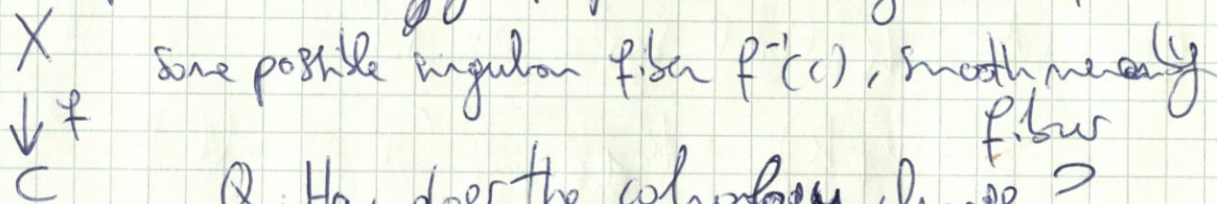 X some possible singular fiber f⁻¹(c), smooth nearby
↓ f fiber
C Q. How does the cohomology change ?